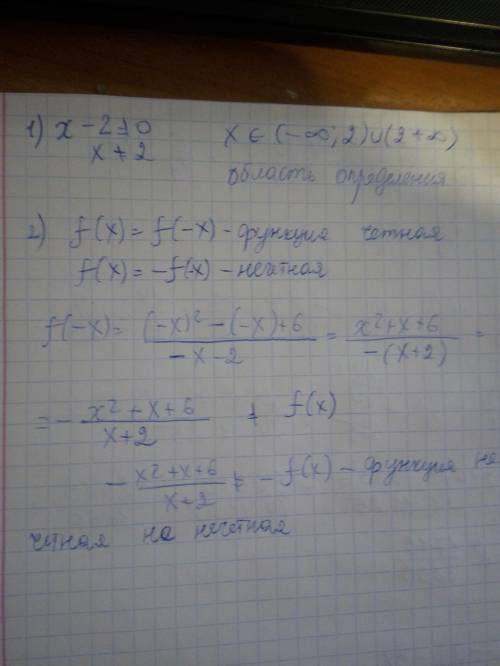 1) x - 2 ≠ 0 x ∈ (-∞; 2) ∪ (2 + ∞)
x ≠ 2 область определения
2) f(x) = f(-x) - функция четная
f(x) = -f(-x) - нечетная
f(-x) = ((-x)² - (-x) + 6)/(-x - 2) = (x² + x + 6)/(-(x + 2)) =
= - (x² + x + 6)/(x + 2) ≠ f(x)
- (x² + x + 6)/(x + 2) ≠ -f(x) - функция не
четная не нечетная